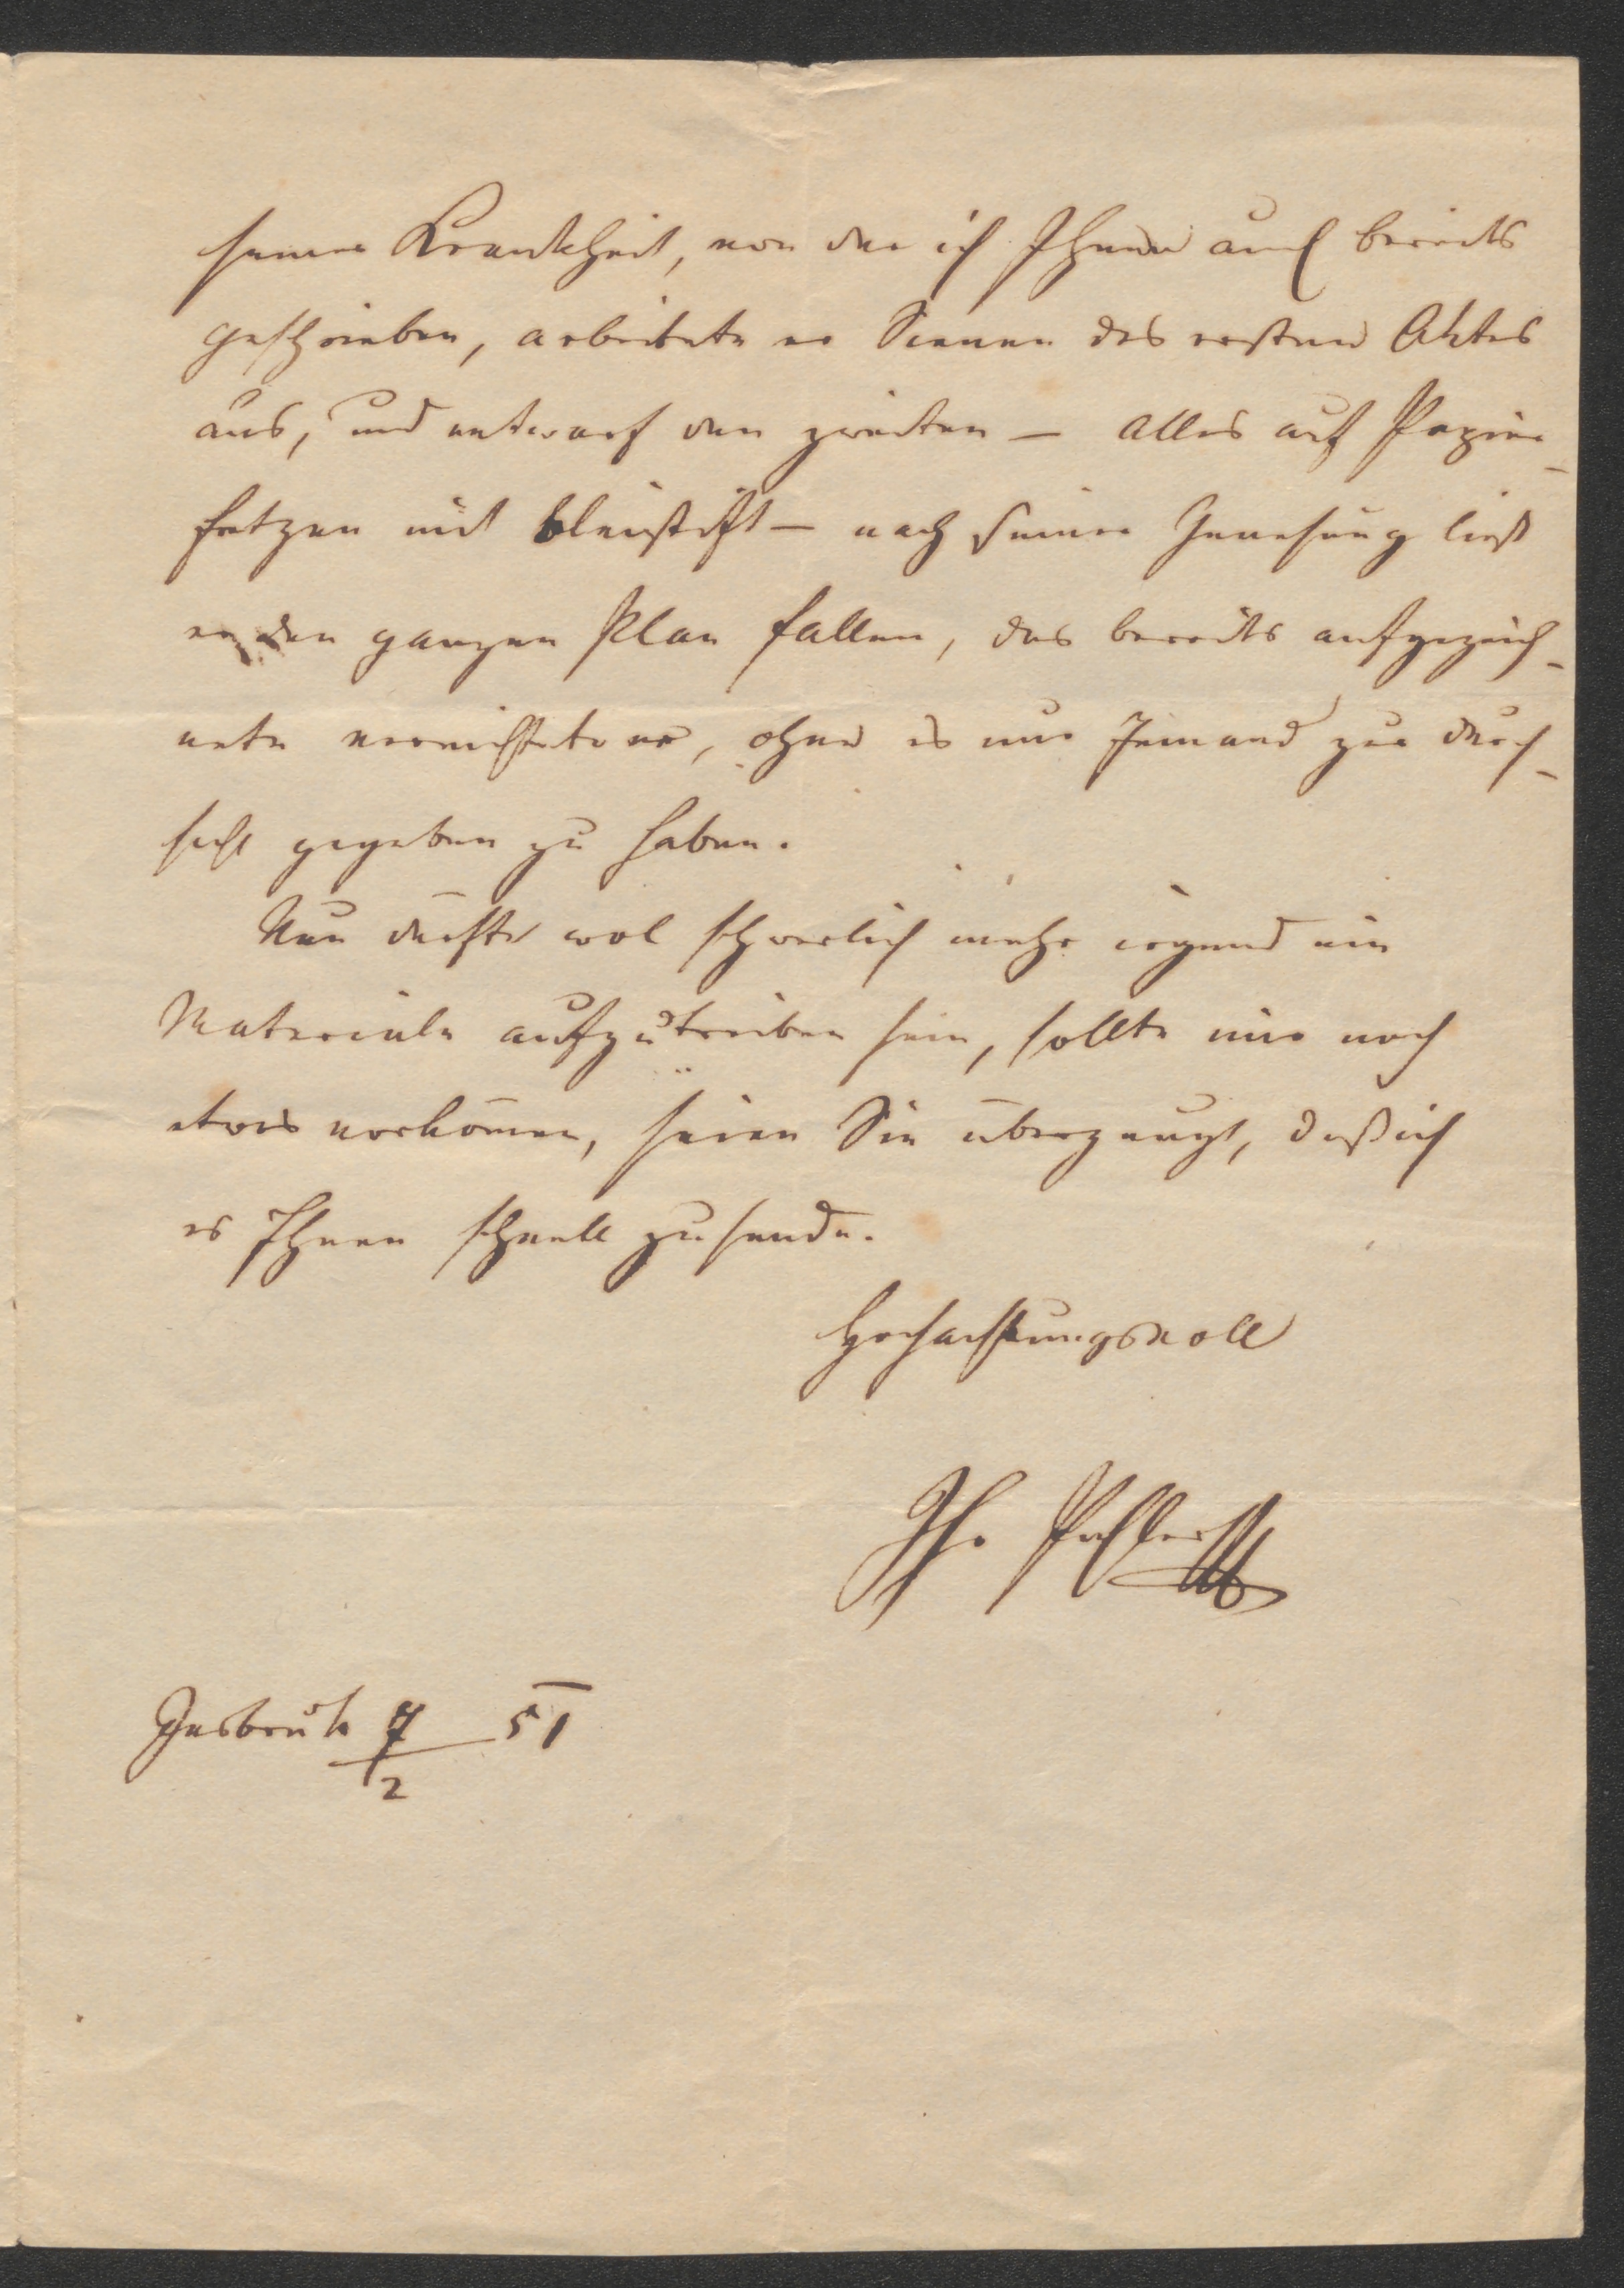 seiner Krankheit, von der ich Ihnen auch bereits
geschrieben, arbeitete er Scenen des ersten Aktes
aus, und entwarf den zweiten — alles auf Papier-
fetzen mit Bleistift — nach seiner Genesung ließ
er den ganzen Plan fallen, das bereits aufgezeich-
nete vernichtete er, ohne es nur Jemand zur Durch-
sicht gegeben zu haben.
Nun dürfte wol schwerlich mehr irgend ein
Materiale aufzutreiben sein, sollte mir noch
etwas vorkom̄en, seien Sie überzeugt, daß ich
es Ihnen schnell zusende.
Hochachtungsvoll
Ihr
Insbruk 7/2 51